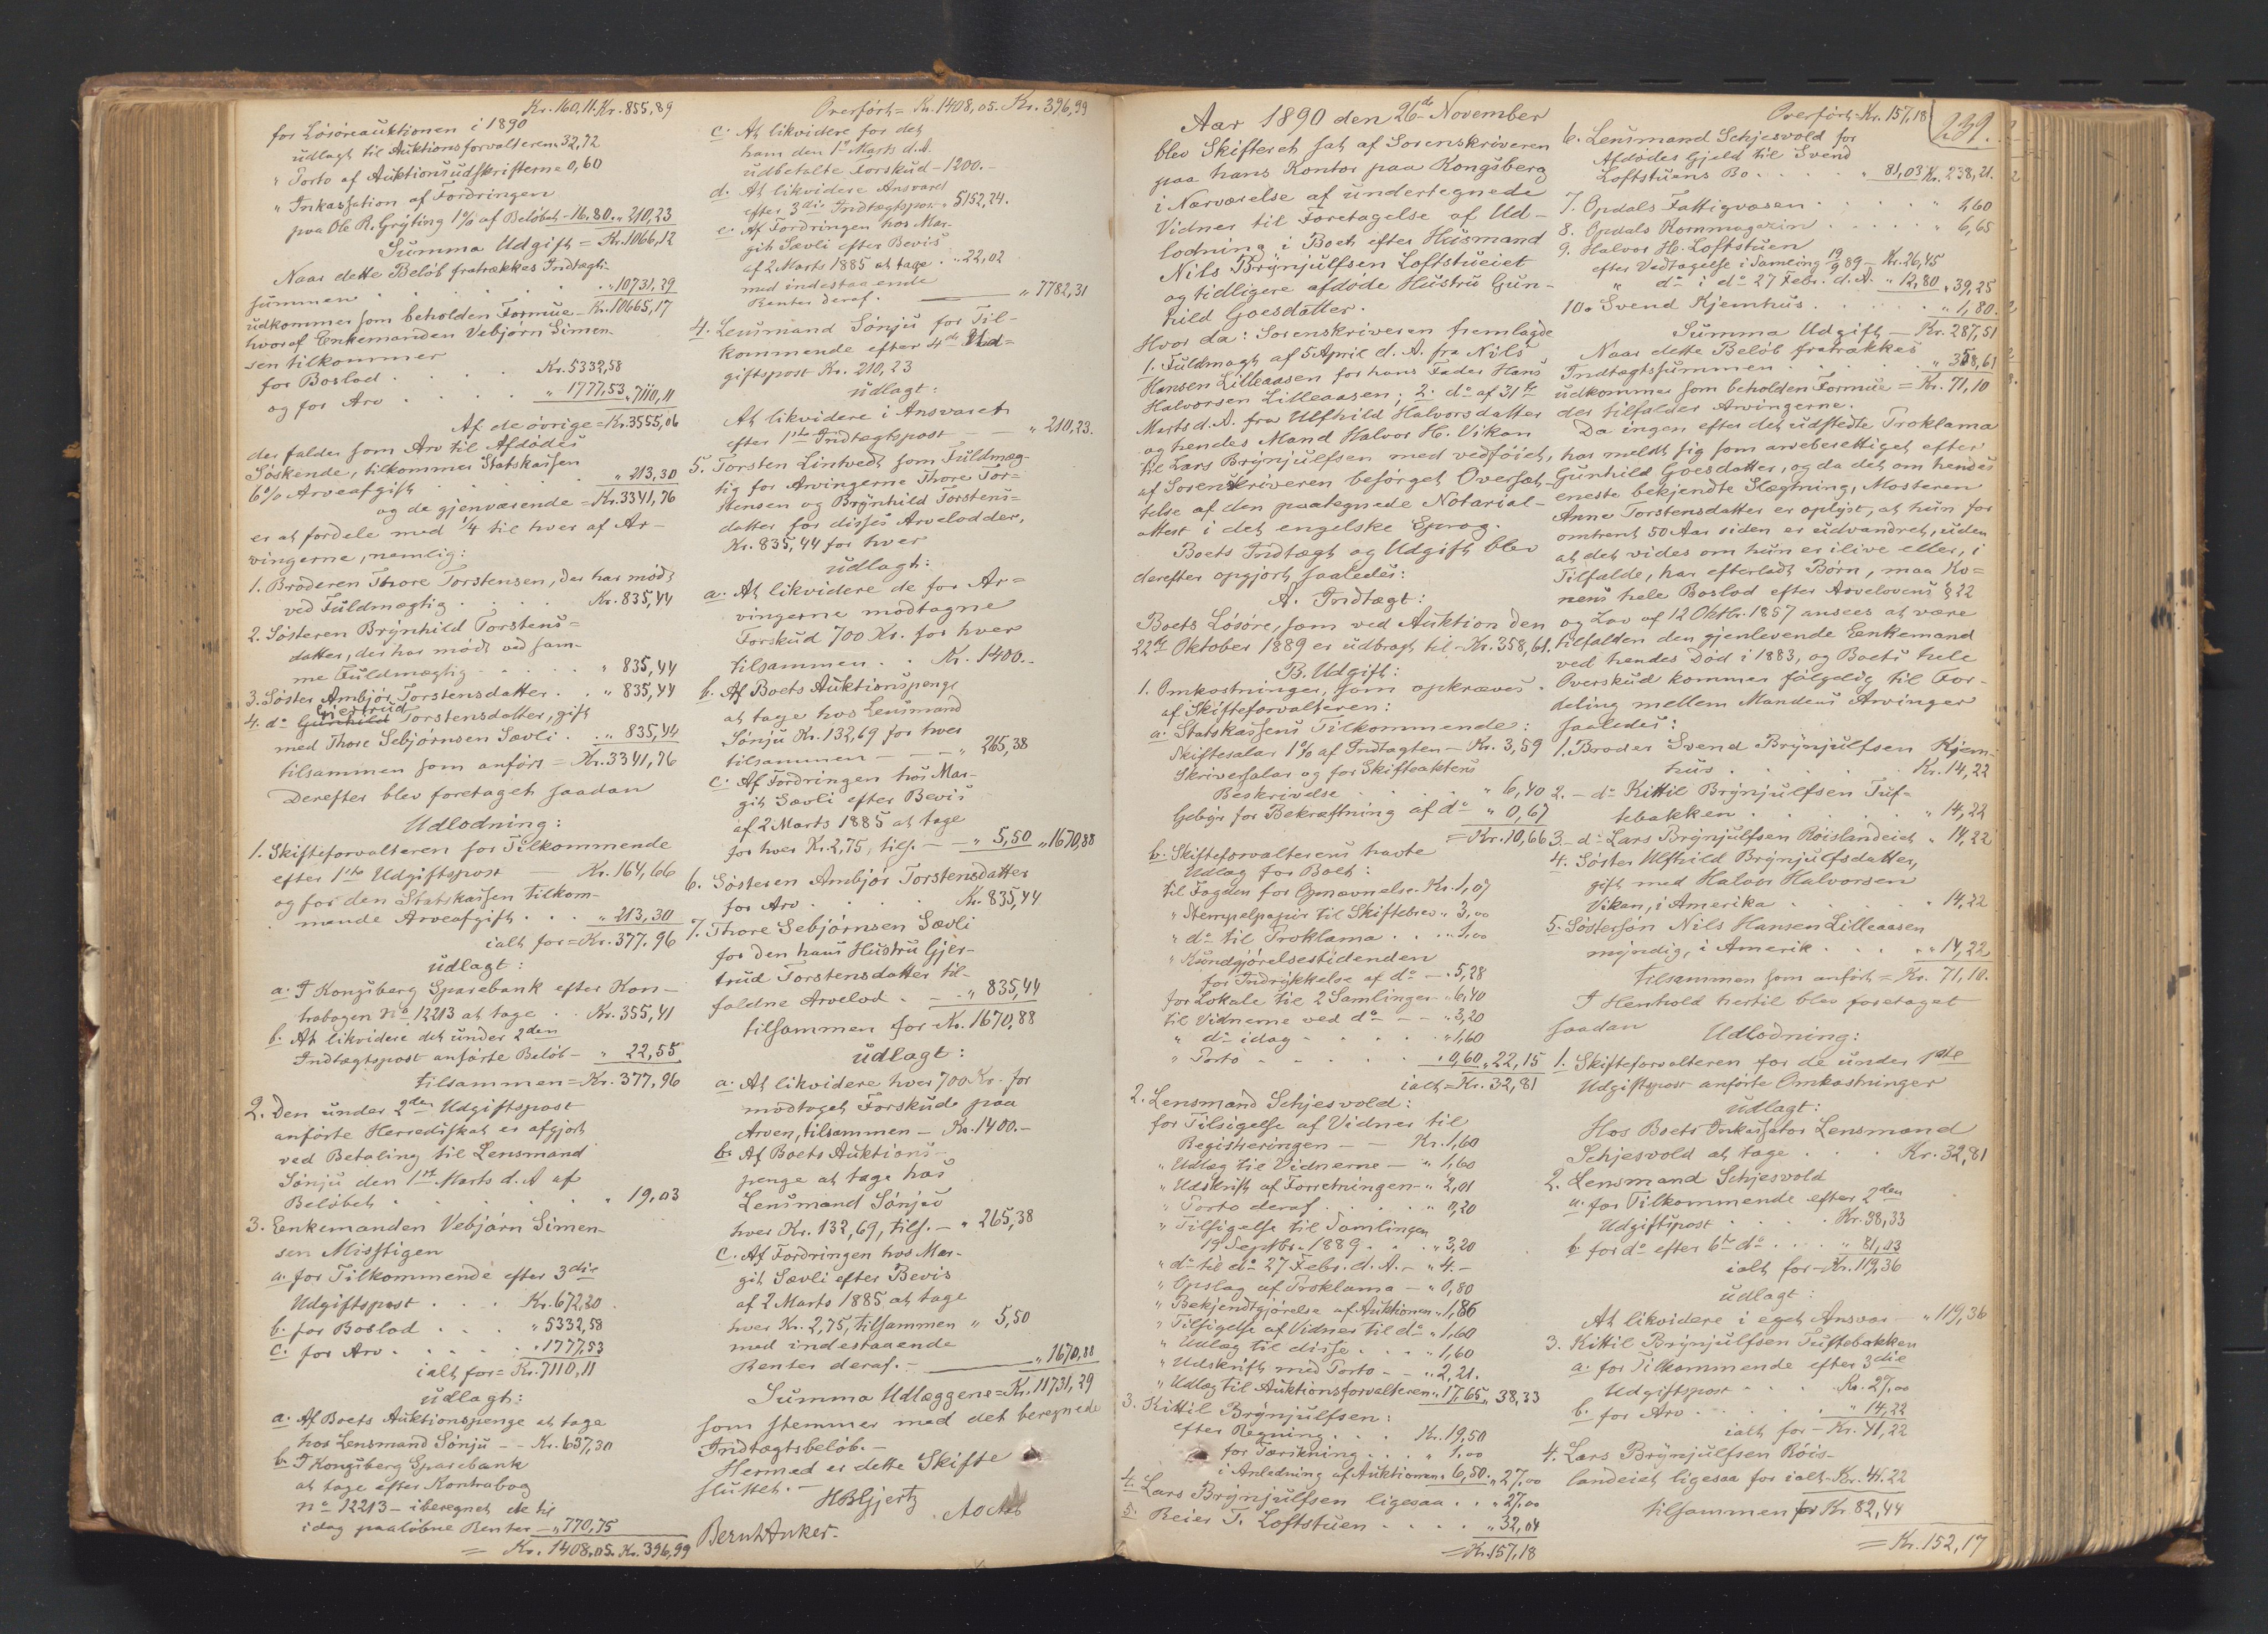 Kr. 160,11. Kr. 855,89
for Løsøreauktionen i 1890
udlagt til Auktionsforvalteren 32,72
" Porto af Auktionsudskrifterne 0,60
" Inkassation af Fordringen
paa Ole R. Grÿting 1% af Beløbet - 16,80. " 210,23
Summa Udgift = Kr. 1066,12
Naar dette Beløb fratrækkes Indtægts-
summen . . . . . . " 10731,29
udkommer som beholden Formue - Kr. 10665,17
hvoraf Enkemanden Vebjørn Simen-
sen tilkommer
for Boslod . . . . Kr. 5332,58
og for Arv . . . . " 1777,53 " 7110,11
Af de øvrige = Kr. 3555,06
der falder som Arv til Afdødes
Søskende, tilkommer Statskassen
6% Arveafgift . . . . " 213,30
og de gjenværende = Kr. 3341,76
er at fordele med 1/4 til hver af Ar-
vingerne, nemlig:
1. Broderen Thore Torstensen, der har mødt
ved Fuldmægtig . . . . Kr. 835,44
2. Søsteren Brÿnhild Torstens=
datter, der har mødt ved sam-
me Fuldmægtig . . . . " 835,44
3. Søster Ambjør Torstensdatter . . " 835,44
Gjertrud
4. do Gunhild Torstensdatter, gift
med Thore Sebjørnsen Sævli . . " 835,44
tilsammen som anført = Kr. 3341,76
Derefter blev foretaget saadan
Udlodning:
1. Skifteforvalteren for Tilkommende
efter 1ste Udgiftspost — Kr. 164,66
og for den Statskassen tilkom-
mende Arveafgift . . . " 213,30
ialt for = Kr. 377,96
udlagt:
a. I Kongsberg Sparebank efter Kon-
trabogen No 12213 at tage . . Kr. 355,41
b. At likvidere det under 2den
Indtægtspost anførte Beløb - " 22,55
tilsammen = Kr. 377,96
2. Den under 2den Udgiftspost
anførte Herredsskat er afgjort
ved Betaling til Lensmand
Sønju den 1ste Marts d. A af
Beløbet . . . . . . " 19,03
3. Eenkemanden Vebjørn Simen-
sen Misstigen
a. for Tilkommende efter 3die
Udgiftspost . . . Kr. 672,20
b. for Boslod . . . " 5332,58
c. for Arv . . . . " 1777,53
ialt for = Kr. 7110,11
udlagt:
a. Af Boets Auktionspenge at tage
hos Lensmand Sønju - - Kr. 637,30
b. I Kongsberg Sparebank
at tage efter Kontrabog
No 12213 - iberegnet de til
idag paaløbne Renter — " 770,75
= Kr. 1408,05. Kr. 396,99
Overført = Kr. 1408,05. Kr. 396,99
c. At likvidere for det
ham den 1e Marts d. A.
udbetalte Forskud - 1200.-
d. At likvidere Ansvaret
efter 3die Indtægtspost - " 5152,24.
e. Af Fordringen hos Mar-
git Sævli efter Bevis
af 2 Marts 1885 at tage . . 22,02
med indestaaende
Renter deraf. — " 7782,31
4. Lensmand Sønju for Til-
kommende efter 4de Ud=
giftspost Kr. 210,23
udlagt:
At likvidere i Ansvaret
efter 1ste Indtægtspost — " 210,23.
5. Torsten Lintvedt som Fuldmæg-
tig for Arvingerne Thore Tor=
stensen og Brÿnhild Torstens=
datter for disses Arvelodder,
Kr. 835,44 for hver
udlagt:
a. At likvidere de for Ar=
vingerne modtagne
Forskud 700 Kr. for hver
tilsammen . . Kr. 1400.-
b. Af Boets Auktionspenge
at tage hos Lensmand
Sønju Kr. 132,69 for hver
tilsammen — — " 265,38
c. Af Fordringen hos Mar-
git Sævli efter Bevis
af 2 Marts 1885 at tage
for hver Kr. 2,75, tils. — " 5,50 " 1670,88
6. Søsteren Ambjør Torstensdatter
for Arv . . . . Kr. 835,44
7. Thore Sebjørnsen Sævli
for den hans Hustru Gjer-
trud Torstensdatter til-
faldne Arvelod . - - " 835,44
tilsammen for Kr. 1670,88
udlagt:
a. At likvidere hver 700 Kr. for
modtaget Forskud paa
Arven, tilsammen - Kr. 1400.-
b. Af Boets Auktions-
penge at tage hos
Lensmand Sønju
hver Kr. 132,69, tils. - " 265,38
c. Af Fordringen hos Mar-
git Sævli efter Bevis
af 2 Marts 1885 at tage
hver Kr. 2,75, tilsammen " 5,50
med indestaaende
Renter deraf. — " 1670,88
Summa Udlæggene = Kr. 11731,29
som stemmer med det beregnede
Indtægtsbeløb. -
Hermed er dette Skifte
sluttet. -
HBGjertz
Bernh Anker.
Aar 1890 den 26de November
blev Skifteret sat af Sorenskriveren
paa hans Kontor paa Kongsberg
i Nærværelse af undertegnede
Vidner til Foretagelse af Ud-
lodning i Boet efter Husmand
Nils Brÿnjulfsen Loftstueiet
og tidligere afdøde Hustru Gun-
hild Goesdatter.
Hvor da: Sorenskriveren fremlagde
1. Fuldmagt af 5 April d. A. fra Nils
Hansen Lilleaasen for hans Fader Hans
Halvorsen Lilleaasen; 2. do af 31te
Marts d. A. fra Ulfhild Halvorsdatter
og hendes Mand Halvor H. Vikan
til Lars Brÿnjulfsen med vedføiet,
af Sorenskriveren besørget Oversæt-
telse af den paategnede Notarial-
attest i det engelske Sprog.
Boets Indtægt og Udgift blev
derefter opgjort saaledes:
A. Indtægt:
Boets Løsøre, som ved Auktion den
22de Oktober 1889 er udbragt til - Kr. 358,61.
B. Udgift:
1. Omkostninger, som opkræves
af Skifteforvalteren:
a. Statskassens Tilkommende:
Skiftesalar 1% af Indtægten - Kr. 3,59
Skriversalar og for Skifteaktens
Beskrivelse . . . . " 6,40
Gebÿr for Bekræftning af do " 0,67
= Kr. 10,66
b. Skifteforvalterens havte
Udlæg for Boet:
til Fogden for Opnævnelse Kr. 1,07
" Stempelpapir til Skiftebrev " 3,00
" do til Proklama . . . " 1,00
" Kundgjørelsestidenden
for Indrÿkkelse af do — " 5,28
for Lokale til 2 Samlinger - " 6,40
til Vidnerne ved do — - " 3,20
" do idag . . . . " 1,60
" Porto - - - - " 0,60 " 22,15
ialt = Kr. 32,81
2. Lensmand Schjesvold:
for Tilsigelse af Vidner til
Registreringen - - Kr. 1,60
" Udlæg til Vidnerne — " 1,60
" Udskrift af Forretningen - " 2,01
" Porto deraf . . . . " 0,20
" Tilsigelse til Samlingen
19 Septbr. 1889 . . . " 3,20
" do til do 27 Febr. d. A. - " 4.-
" Opslag af Proklama — " 0,80
" Bekjendtgjørelse af Auktionen " 1,86
" Tilsigelse af Vidner til do " 1,60
" Udlæg til disse . . . " 1,60
" Udskrift med Porto - - " 2,21.
" Udlæg til Auktionsforvalteren " 17,65 " 38,33
3. Kittil Brÿnjulfsen:
efter Regning . . . Kr. 19,50
for Tærikning . . " 1,00
i Anledning af Auktionen " 6,50. " 27,00
4. Lars Brÿnjulfsen ligesaa . . " 27,00
5. Reier T. Loftstuen . . . . " 32,04
= Kr. 157,18
Overført - Kr. 157,18
239.
6. Lensmand Schjesvold for
Afdødes Gjæld til Svend
Loftstuens Bo . . . . " 81,03 Kr. 238,21.
7. Opdals Fattigvæsen . . . . " 1,60
8. Opdals Kornmagazin . . . . " 6,65
9. Halvor H. Loftstuen
efter Vedtagelse i Samling 19/9 89 - Kr. 26,45
" do i do 27 Febr. d. A. " 12,80 " 39,25
10. Svend Kjemhus . . . . " 1,80.
Summa Udgift - Kr. 287,51
Naar dette Beløb fratrækkes
Indtægtssummen . . . . " 358,61
udkommer som beholden Formue = Kr. 71,10
der tilfalder Arvingerne.
Da ingen efter det udstedte Proklama
har meldt sig som arveberettiget efter
Gunhild Goesdatter, og da det om hendes
eneste bekjendte Slægtning, Mosteren
Anne Torstensdatter er oplÿst, at hun for
omtrent 50 Aar siden er udvandret, uden
at det vides om hun er ilive eller, i
Tilfælde, har efterladt Børn, maa Ko=
nens hele Boslod efter Arvelovens § 22
og Lov af 12 Oktbr. 1857 ansees at være
tilfalden den gjenlevende Eenkemand
ved hendes Død i 1883, og Boets hele
Overskud kommer følgelig til For-
deling mellem Mandens Arvinger
saaledes:
1. Broder Svend Brÿnjulfsen Kjem-
hus . . . . . Kr. 14,22
2. - do Kittil Brÿnjulfsen Tuf=
tebakken . . . . . " 14,22
3. - do Lars Brÿnjulfsen Røislandeiet " 14,22
4. Søster Ulfhild Brÿnjulfsdatter,
gift med Halvor Halvorsen
Vikan, i Amerika . . . . " 14,22
5. Søstersøn Nils Hansen Lilleaasen
mÿndig, i Amerik . . . " 14,22
tilsammen som anført = Kr. 71,10.
I Henhold hertil blev foretaget
saadan
Udlodning:
1. Skifteforvalteren for de under 1ste
Udgiftspost anførte Omkostninger
udlagt:
Hos Boets Inkassator Lensmand
Schjesvold at tage . . . Kr. 32,81
2. Lensmand Schjesvold
a. for Tilkommende efter 2den
Udgiftspost . . . . Kr. 38,33
b. for do efter 6te do . . . " 81,03
ialt for - Kr. 119,36
udlagt:
At likvidere i eget Ansvar — " 119,36
3. Kittil Brÿnjulfsen Tuftebakken
a. for Tilkommende efter 3die
Udgiftspost . . . Kr. 27,00
b. for Arv . . . . . " 14,22
ialt for - Kr. 41,22
4. Lars Brÿnjulfsen Røis-
landeiet ligesaa for ialt - Kr. 41.22
tilsammen for Kr 82,44
= Kr. 152,17